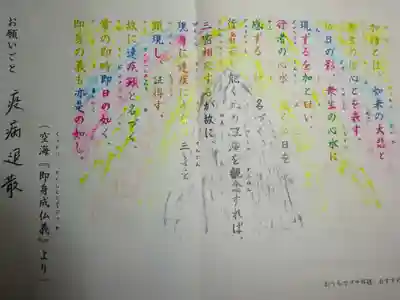 加持とは、如来の大悲と
衆生の信心とを表す。
仏日の影、衆生の心水に
現ずるを加と曰い、
行者の心水、能く仏日を
感ずるを 名づく
行者 能く 此の理趣を観念すれば、
三密相応するが故に、
現身に速疾に 三身を
顕現し、証得す。
故に速疾顕と名づく。
常の即時即日の如く、
即身の義も亦是の如し。
(空海『即身成仏義』より)
お願いごと 疾病退散